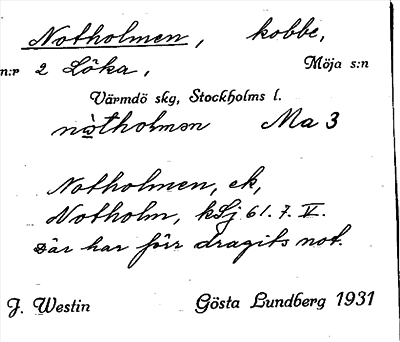 Notholmen, kobbe,
n:r 2 Löka, Möja s:n
Värmdö skg, Stockholms l.
nωtholmən Ma 3
Notholmen, ek,
Notholm, kSj 61. 7. V.
Där har förr dragits not.
J. Westin Gösta Lundberg 1931